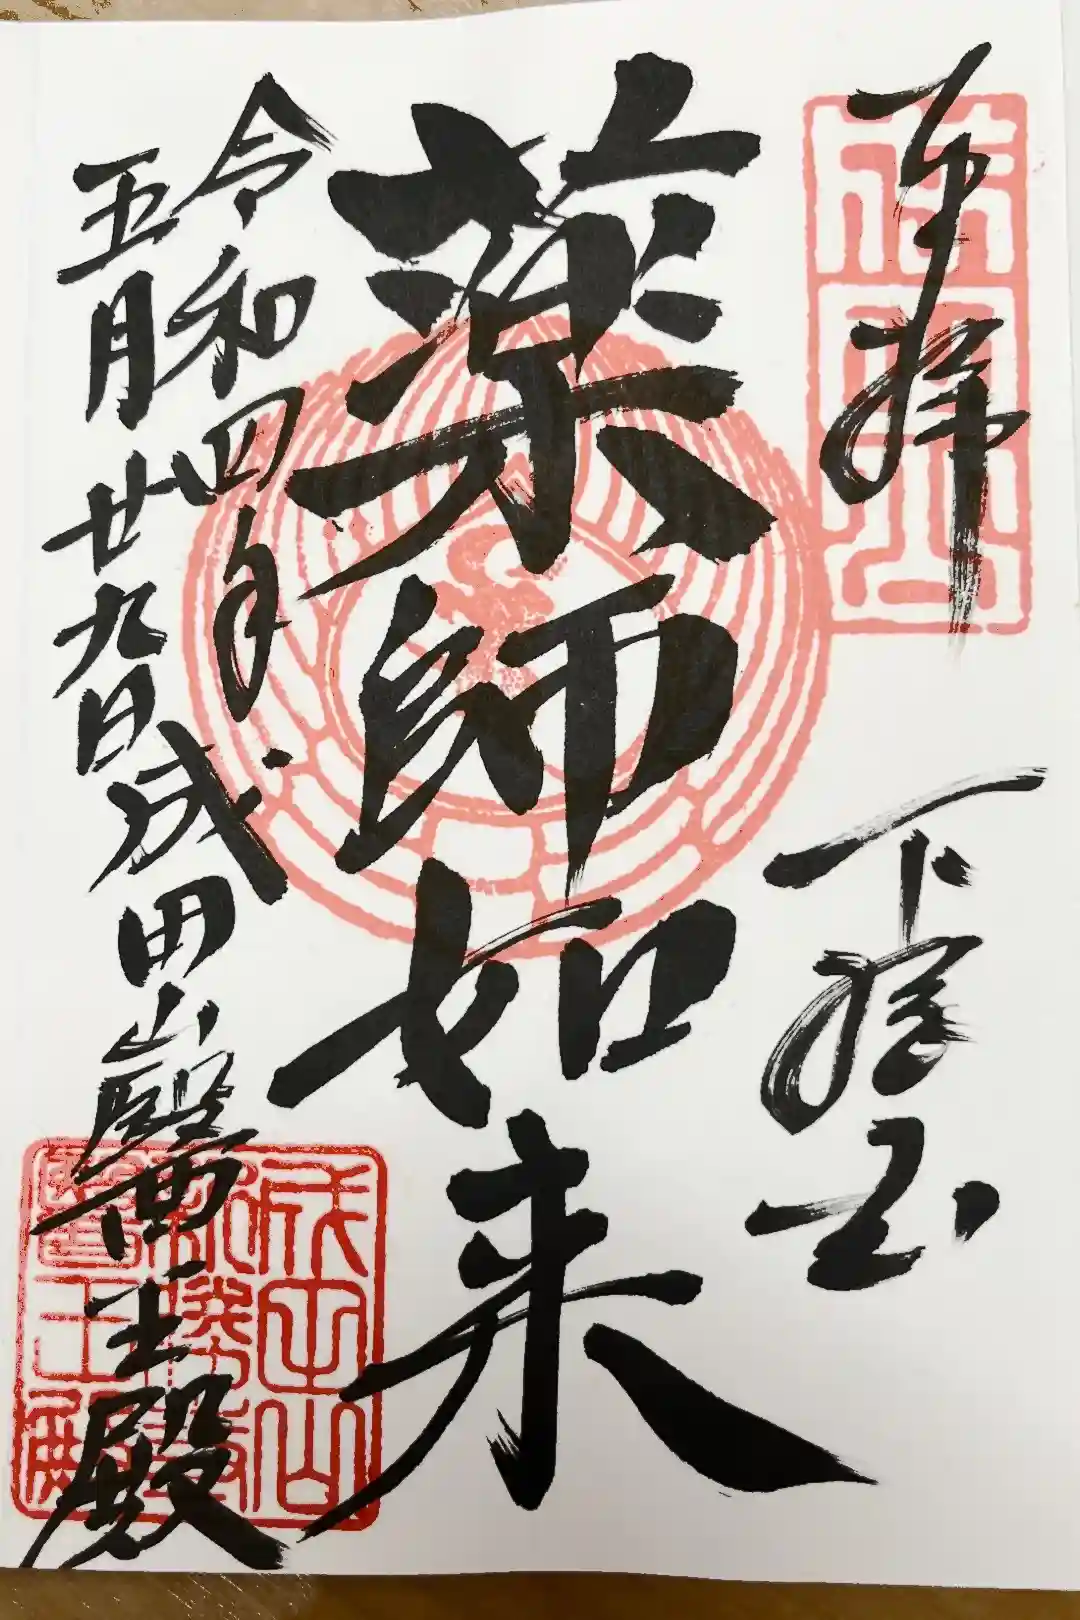 奉拝
下総国
薬師如来
令和四年
五月廿九日成田山醫王殿
成田山
新勝寺
醫王殿